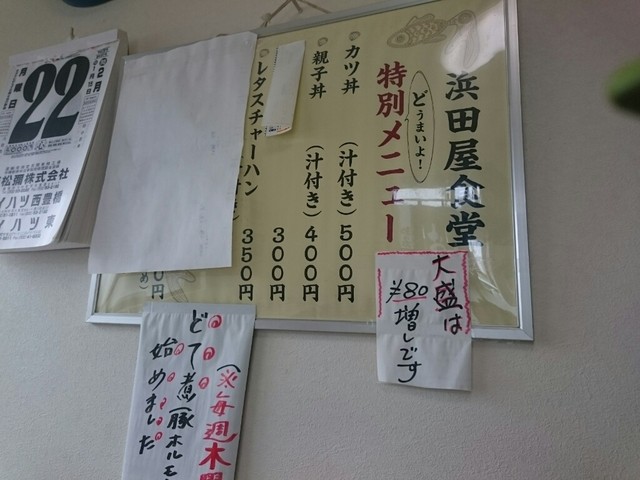 浜田屋食堂
どうまいよ！
特別メニュー
カツ丼 (汁付き) 500円
親子丼 (汁付き) 400円
300円
レタスチャーハン 350円
0円
大盛は
¥80
増しです
(※毎週木曜
どて煮(豚ホルモ
始めました
2月
22
月曜日
松園株式会社
イハツ西豊橋
イハツ東